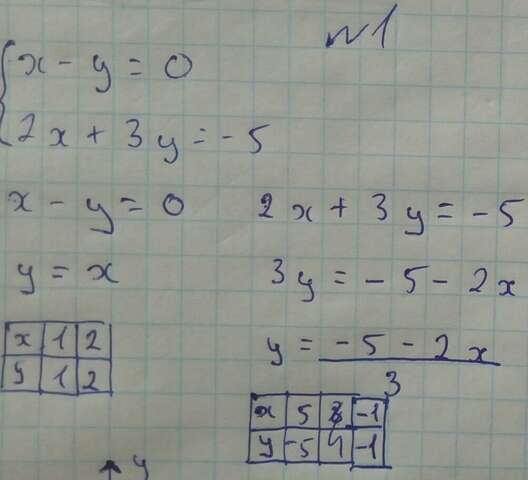 N1
{ x - y = 0
2x + 3y = -5
x - y = 0
y = x
x 1 2
y 1 2
2x + 3y = -5
3y = -5 - 2x
y = (-5 - 2x) / 3
x 5 -1
y -5 4 -1
y